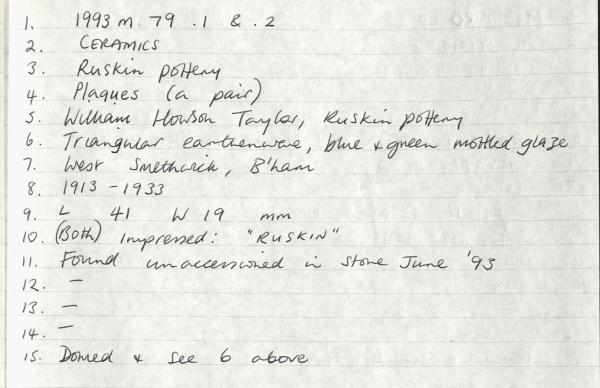 1. 1993 M 79 .1 & .2
2. CERAMICS
3. Ruskin pottery
4. Plaques (a pair)
5. William Howson Taylor, Ruskin pottery
6. Triangular earthenware, blue & green mottled glaze
7. West Smethwick, B'ham
8. 1913 - 1933
9. L 41 W 19 mm
10. (Both) Impressed: "RUSKIN"
11. Found unaccessioned in store June '93
12. –
13. –
14. –
15. Domed & see 6 above